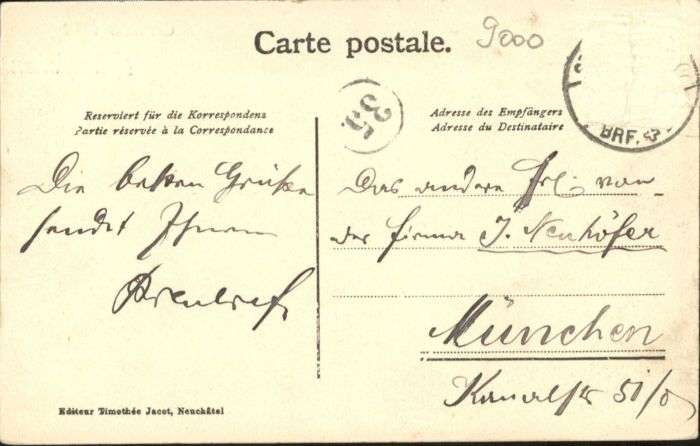 Carte postale.
9000
BRF. 3
35.
Reserviert für die Korrespondenz
Partie réservée à la Correspondance
Adresse des Empfängers
Adresse du Destinataire
Die besten Grüße
sendet Ihnen
Das andere Frl. von
der Firma J. Neuhöfer
München
Kanalstr 51/0
Editeur Timothée Jacot, Neuchâtel